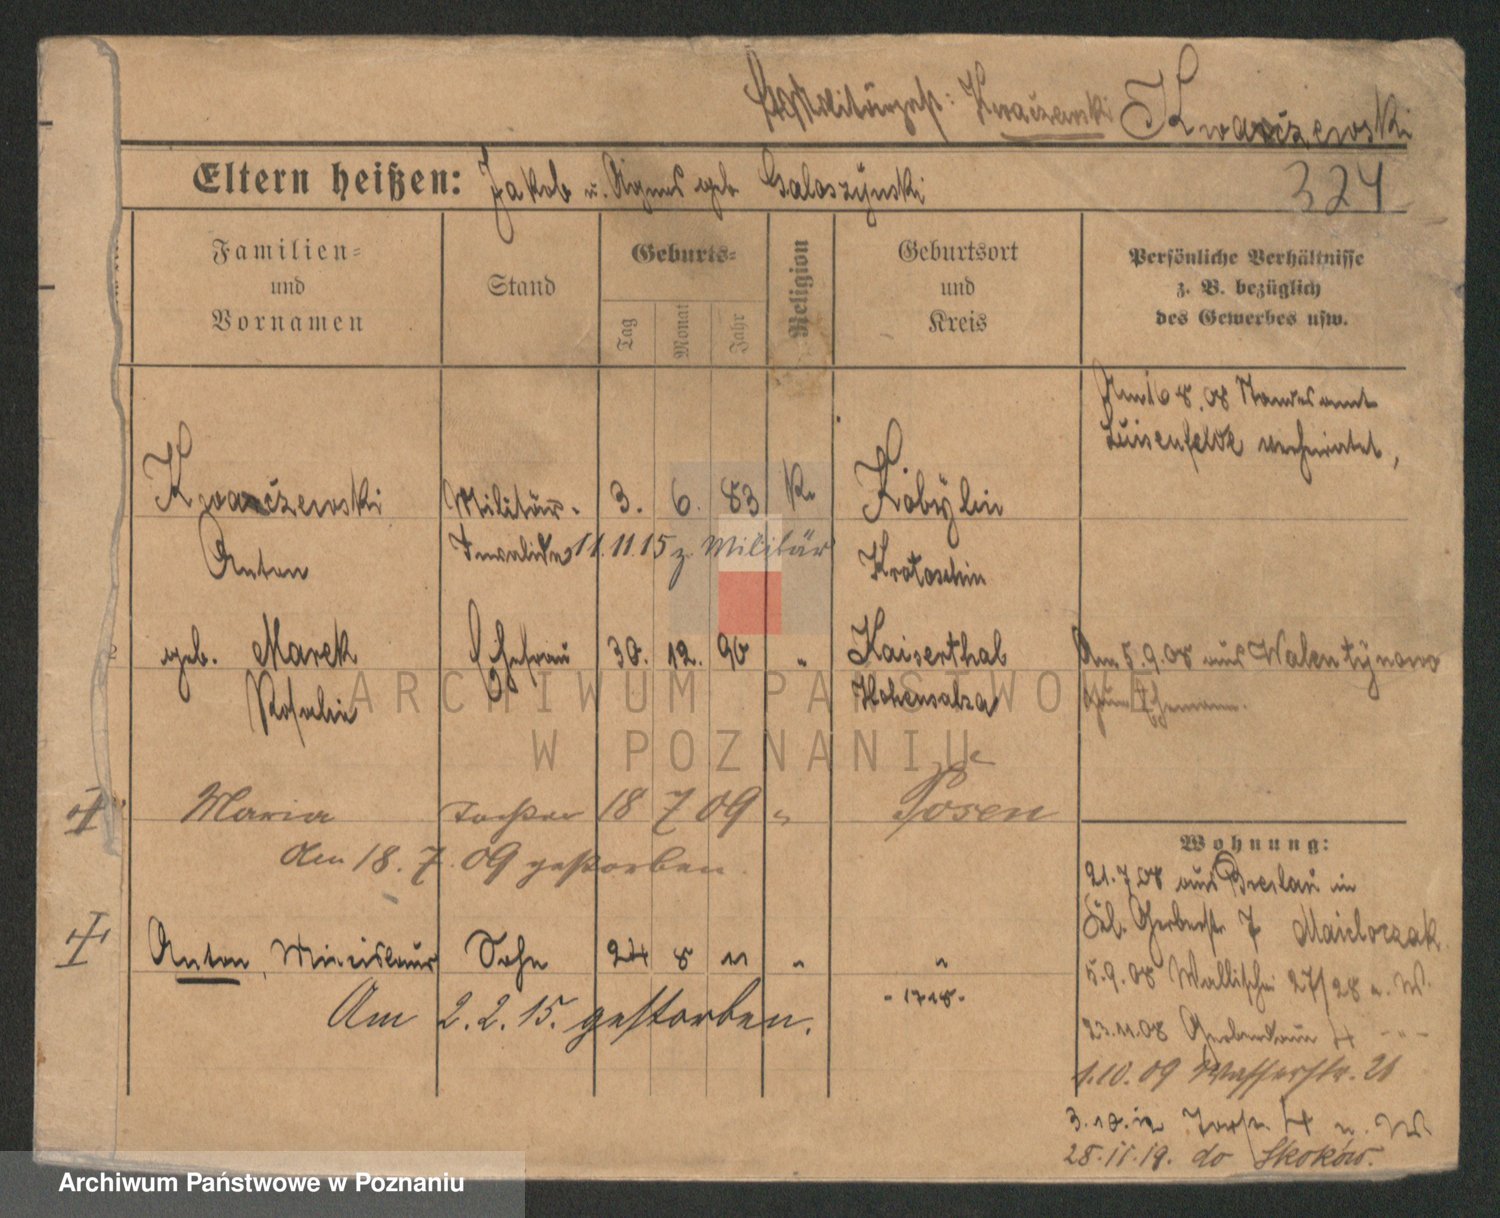 Kwarčzewski Kwarčzewski
Eltern heißen: Jakob u. Agnes geb Galaszynski 324
Familien= und Vornamen
Stand
Geburts=
Tag Monat Jahr
Religion
Geburtsort und Kreis
Persönliche Verhältnisse
z. B. bezüglich
des Gewerbes usw.
08 Standesamt
Luisenfelde verheiratet,
Kwarčzewski Militär- 3. 6. 83 K. Kobylin
Anton Invalide 11.11.15 z. Militär Krotoschin
geb. Marek Ehefrau 30. 12. 90 " Kaiserthal Am 5.9.08 aus Walentynowo
Rosalie Hohensalza zum Ehemann.
Maria Tochter 18 7 09 " Posen
den 18. 7. 09 gestorben.
Wohnung:
21.7.08 aus Breslau in
Gerberstr. 7
Anton, Sohn 24 8 11 " "
5.9.08 Wallischei 27/28 u. W.
Am 2.2.15. gestorben.
23.11.08 Gerberdamm 4 - " -
1.10.09 Wasserstr. 21
3.10.12 4 u. W.
28.11.19. do Skoków.
ARCHIWUM PAŃSTWOWE
W POZNANIU
Archiwum Państwowe w Poznaniu